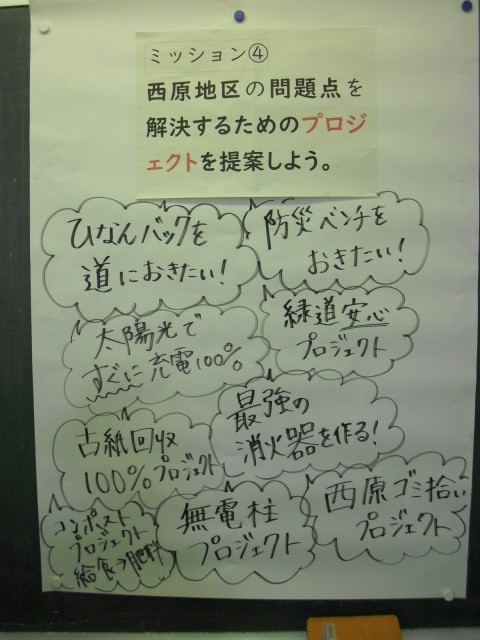 ミッション④
西原地区の問題点を
解決するためのプロジ
ェクトを提案しよう。
ひなんバックを
道におきたい!
防災ベンチを
おきたい!
太陽光で
すぐに充電100%
緑道安心
プロジェクト
古紙回収
100%プロジェクト
最強の
消火器を作る!
コンポスト
プロジェクト
給食→肥料
無電柱
プロジェクト
西原ゴミ拾い
プロジェクト